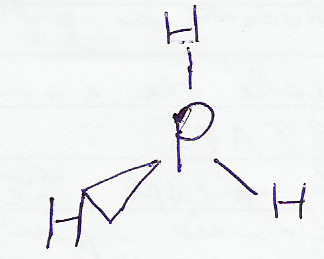 H
P
H H